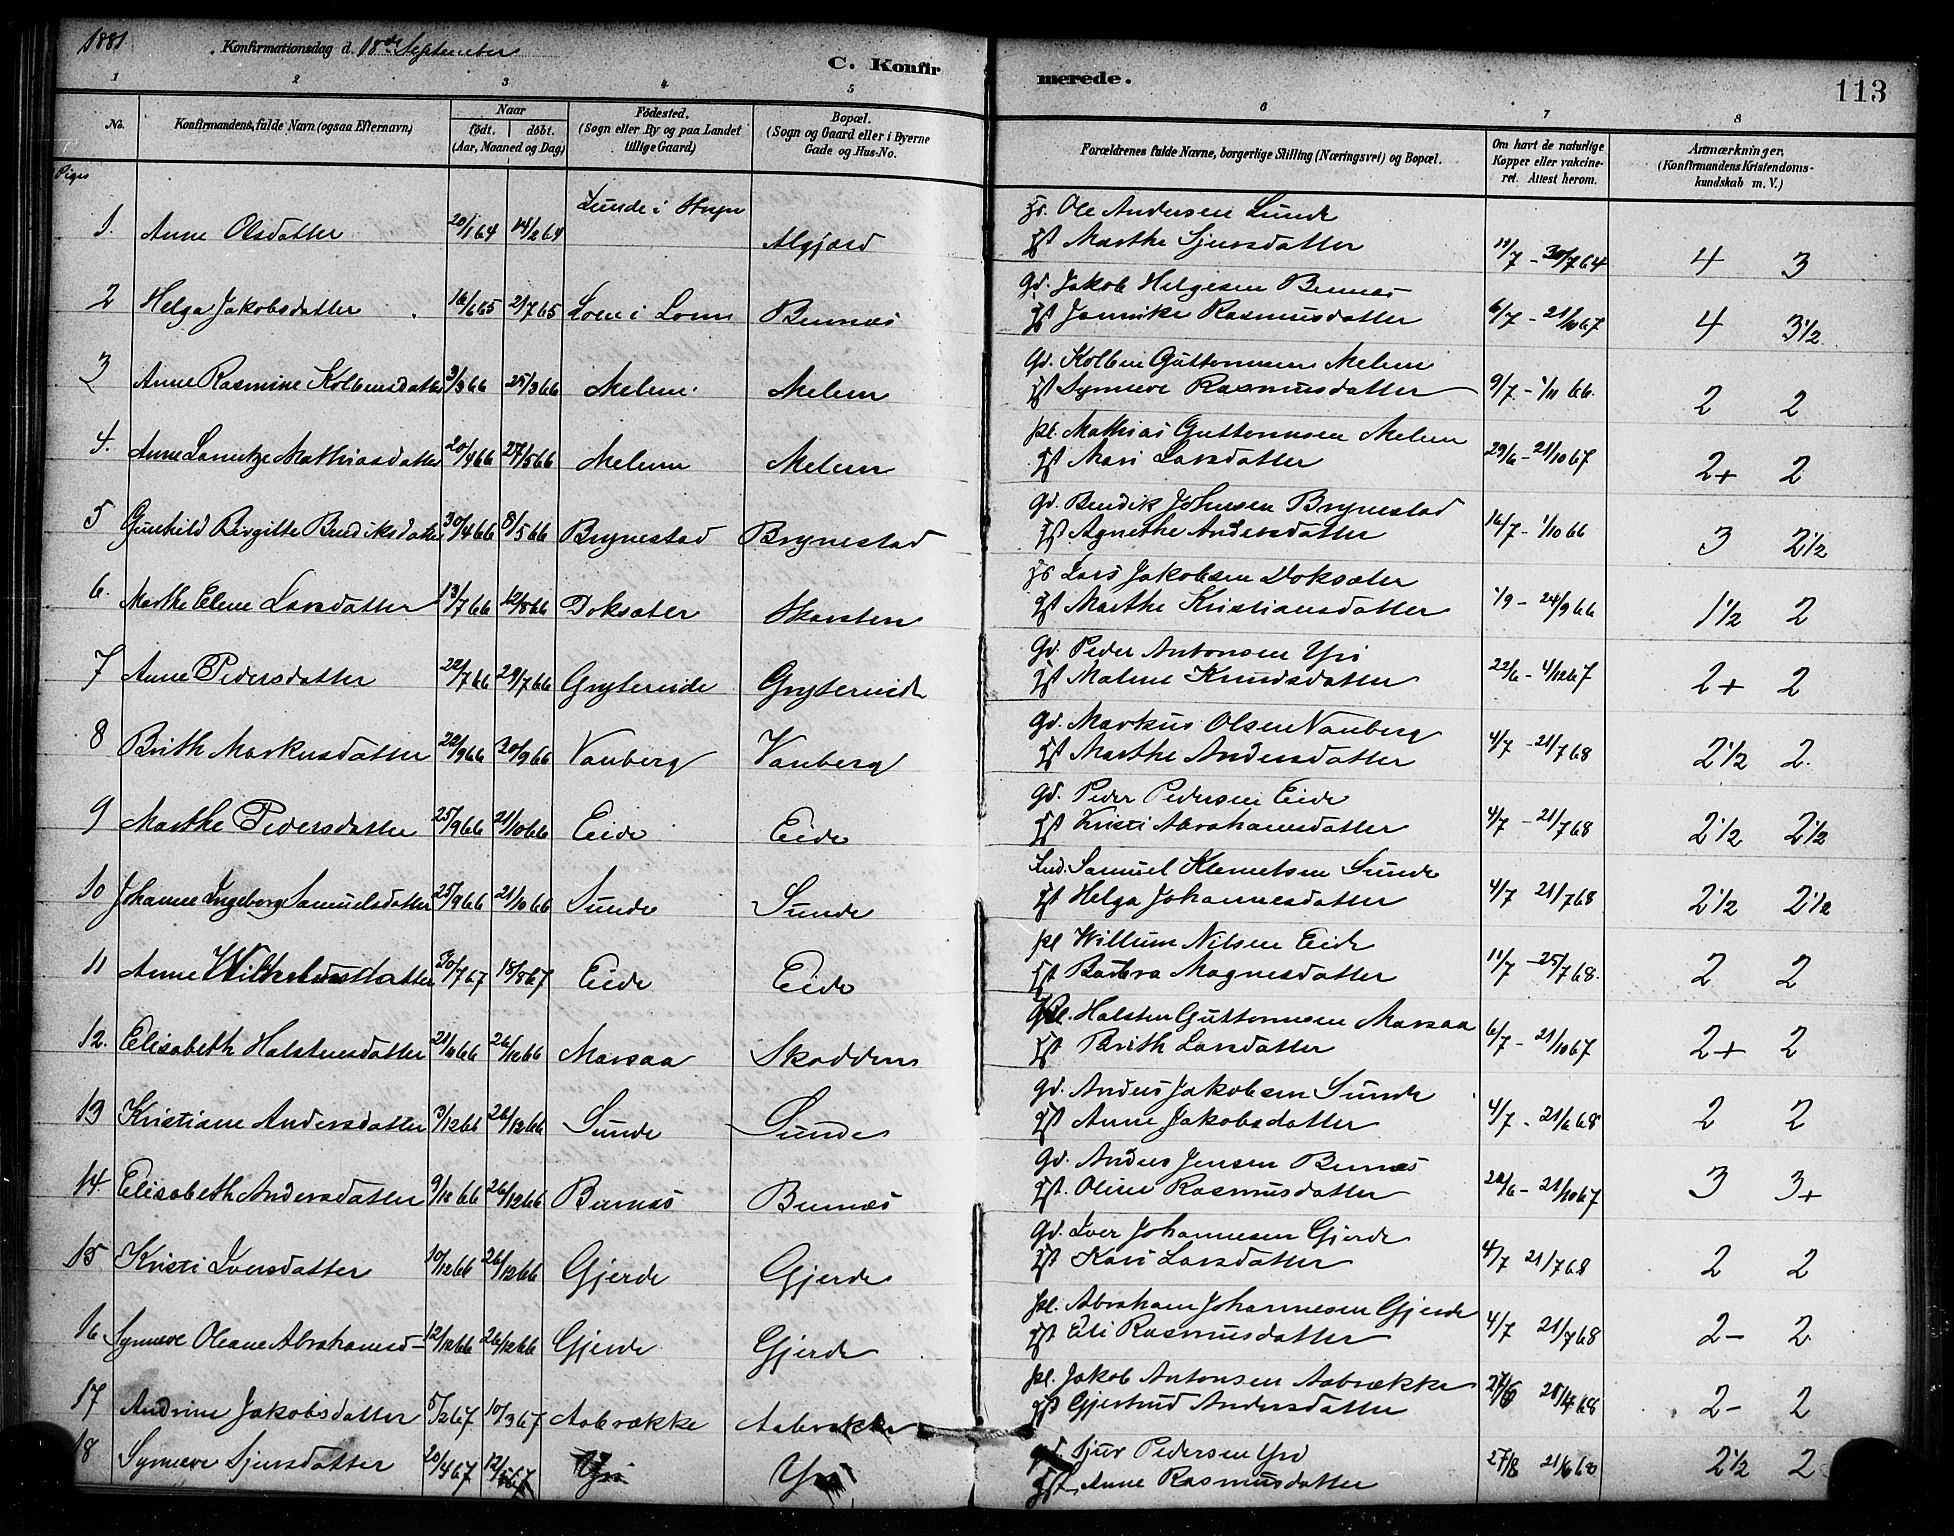 1881
Konfirmationsdag d. 18de September
C. Konfirmerede.
113
1 2 3 4 5 6 7 8
No.
Konfirmandens fulde Navn (ogsaa Efternavn)
Naar
födt. döbt.
(Aar, Maaned og Dag)
Födested.
(Sogn eller By og paa Landet
tillige Gaard)
Bopæl.
(Sogn og Gaard eller i Byerne
Gade og Hus-No.
Forældrenes fulde Navne, borgerlige Stilling (Næringsvei) og Bopæl.
Om havt de naturlige
Kopper eller vakcine-
ret. Attest herom.
Anmærkninger.
(Konfirmandens Kristendoms-
kundskab m. V.)
Piger
Ole Andersen Lunde
1. Anne Olsdatter 20/1 64 14/2 64 Lunde i Stryn Marthe Sjursdatter 11/7 - 30/7 64 4 3
Gd. Jakob Helgesen
2 Helga Jakobsdatter 16/6 65 2/7 65 Loen Jannike Rasmusdatter 6/7 - 21/10 67 4 3 1/2
Gd. Kolben Guttormsen Melem
3 Anne Rasmine Kolbensdatter 3/3 66 25/3 66 Melem Melem Synneve Rasmusdatter 9/7 - 1/11 66. 2 2
pl. Mathias Guttormsen Melem
4. Anne Mathiasdatter 20/4 66 27/5 66 Melem Melem Mari Larsdatter 29/6 - 21/10 67 2+ 2
Gd. Bendik Johnsen Brynestad
5 Gunhild Birgitte Bendiksdatter 30/4 66 8/5 66 Brynestad Brynestad Agnethe Andersdatter 16/7 - 1/10 66 3 2 1/2
Lars Jakobsen Doksæter
6. Marthe Elene Larsdatter 13/7 66 12/8 66 Doksæter Skarsten Marthe Kristiansdatter 1/9 - 24/9 66 1 1/2 2
Gd. Peder Antonsen Yri
7 Anne Pedersdatter 22/7 66 29/7 66 Grytereide Grytereide Malene Knudsdatter 22/6 - 4/12 67 2+ 2
Gd. Markus Olsen Vanberg
8 Brith Markusdatter 22/9 66 30/9 66 Vanberg Vanberg Marthe Andersdatter 4/7 - 21/7 68 2 1/2 2.
Gd. Peder Pedersen Eide
9 Marthe Pedersdatter 25/9 66 21/10 66 Eide Eide Kristi Abrahamsdatter 4/7 - 21/7 68 2 1/2 2 1/2
Ind. Samuel Klemetsen Sunde
10 Johanne Ingeborg Samuelsdatter 25/9 66 21/10 66 Sunde Sunde Helga Johannesdatter 4/7 21/7 68 2 1/2 2 1/2
pl Willum Nilsen Eide
11 Anne 30/7 67 18/8 67 Eide Eide Barbra Magnesdatter 11/7 - 25/7 68. 2 2
pl. Halsten Guttormsen Marsaa
12. Elisabeth Halstensdatter 26/12 66 Marsaa Skodden Brith Larsdatter 6/7 - 21/10 67 2+ 2
Gd. Anders Jakobsen Sunde
13 Kristiane Andersdatter 3/12 66 26/12 66 Sunde Sunde Anne Jakobsdatter 4/7 - 21/6 68 2 2
Gd. Anders Jensen
14. Elisabeth Andersdatter 9/12 66 26/12 66 Oline Rasmusdatter 21/10 67 3 3+
Gd. Iver Johannesen Gjerde
15 Kristi Iversdatter 10/12 66 26/12 66 Gjerde Gjerde Kari Larsdatter 4/7 21/7 68 2 2
pl. Abraham Johannesen Gjerde
16 Synneve Oleane Abrahamsd- 12/12 66 26/12 66 Gjerde Gjerde Eli Rasmusdatter 4/7 21/7 68 2- 2
pl. Jakob Antonsen Aabrække
17 Andrine Jakobsdatter 5/2 67 10/3 67 Aabrække Aabrække Gjertrud Andersdatter 2- 2
Sjur Pedersen Yri
18 Synneve Sjursdatter 20/4 67 Yri Yri Anne Rasmusdatter 2 1/2 2